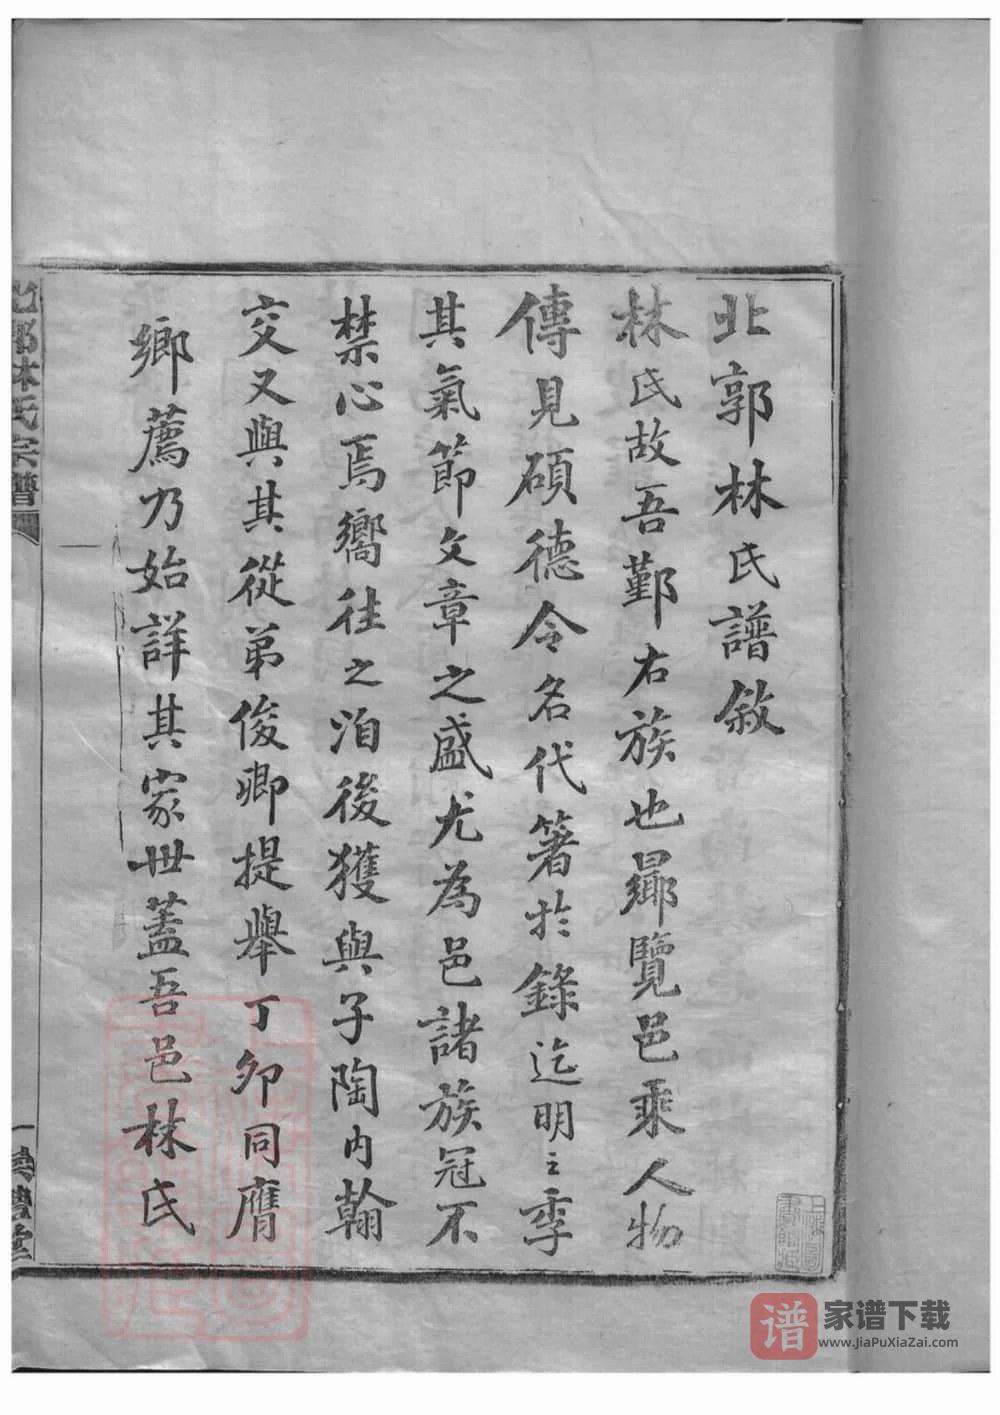 北郭林氏譜敘
林氏故吾鄞右族也曏覽邑乘人物
傳見碩德令名代箸於錄迄明之季
其氣節文章之盛尤為邑諸族冠不
禁心焉嚮往之洎後獲與子陶內翰
交又與其從弟俊卿提舉丁卯同膺
鄉薦乃始詳其家世蓋吾邑林氏
北郭林氏宗譜
一
谱
家谱下载
www.JiaPuXiaZai.com